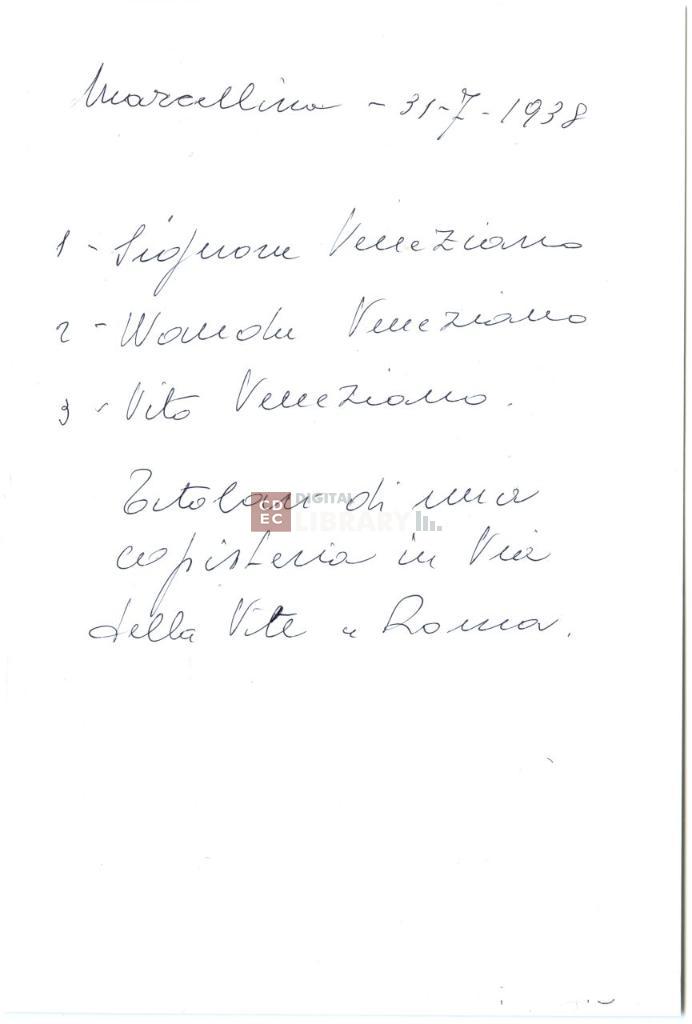 Marcellina - 31-7-1938
1 - Signora Veneziano
2 - Wanda Veneziano
3 - Vito Veneziano.
Titolari di una
CDEC DIGITAL LIBRARY
copisteria in Via
della Vite a Roma.